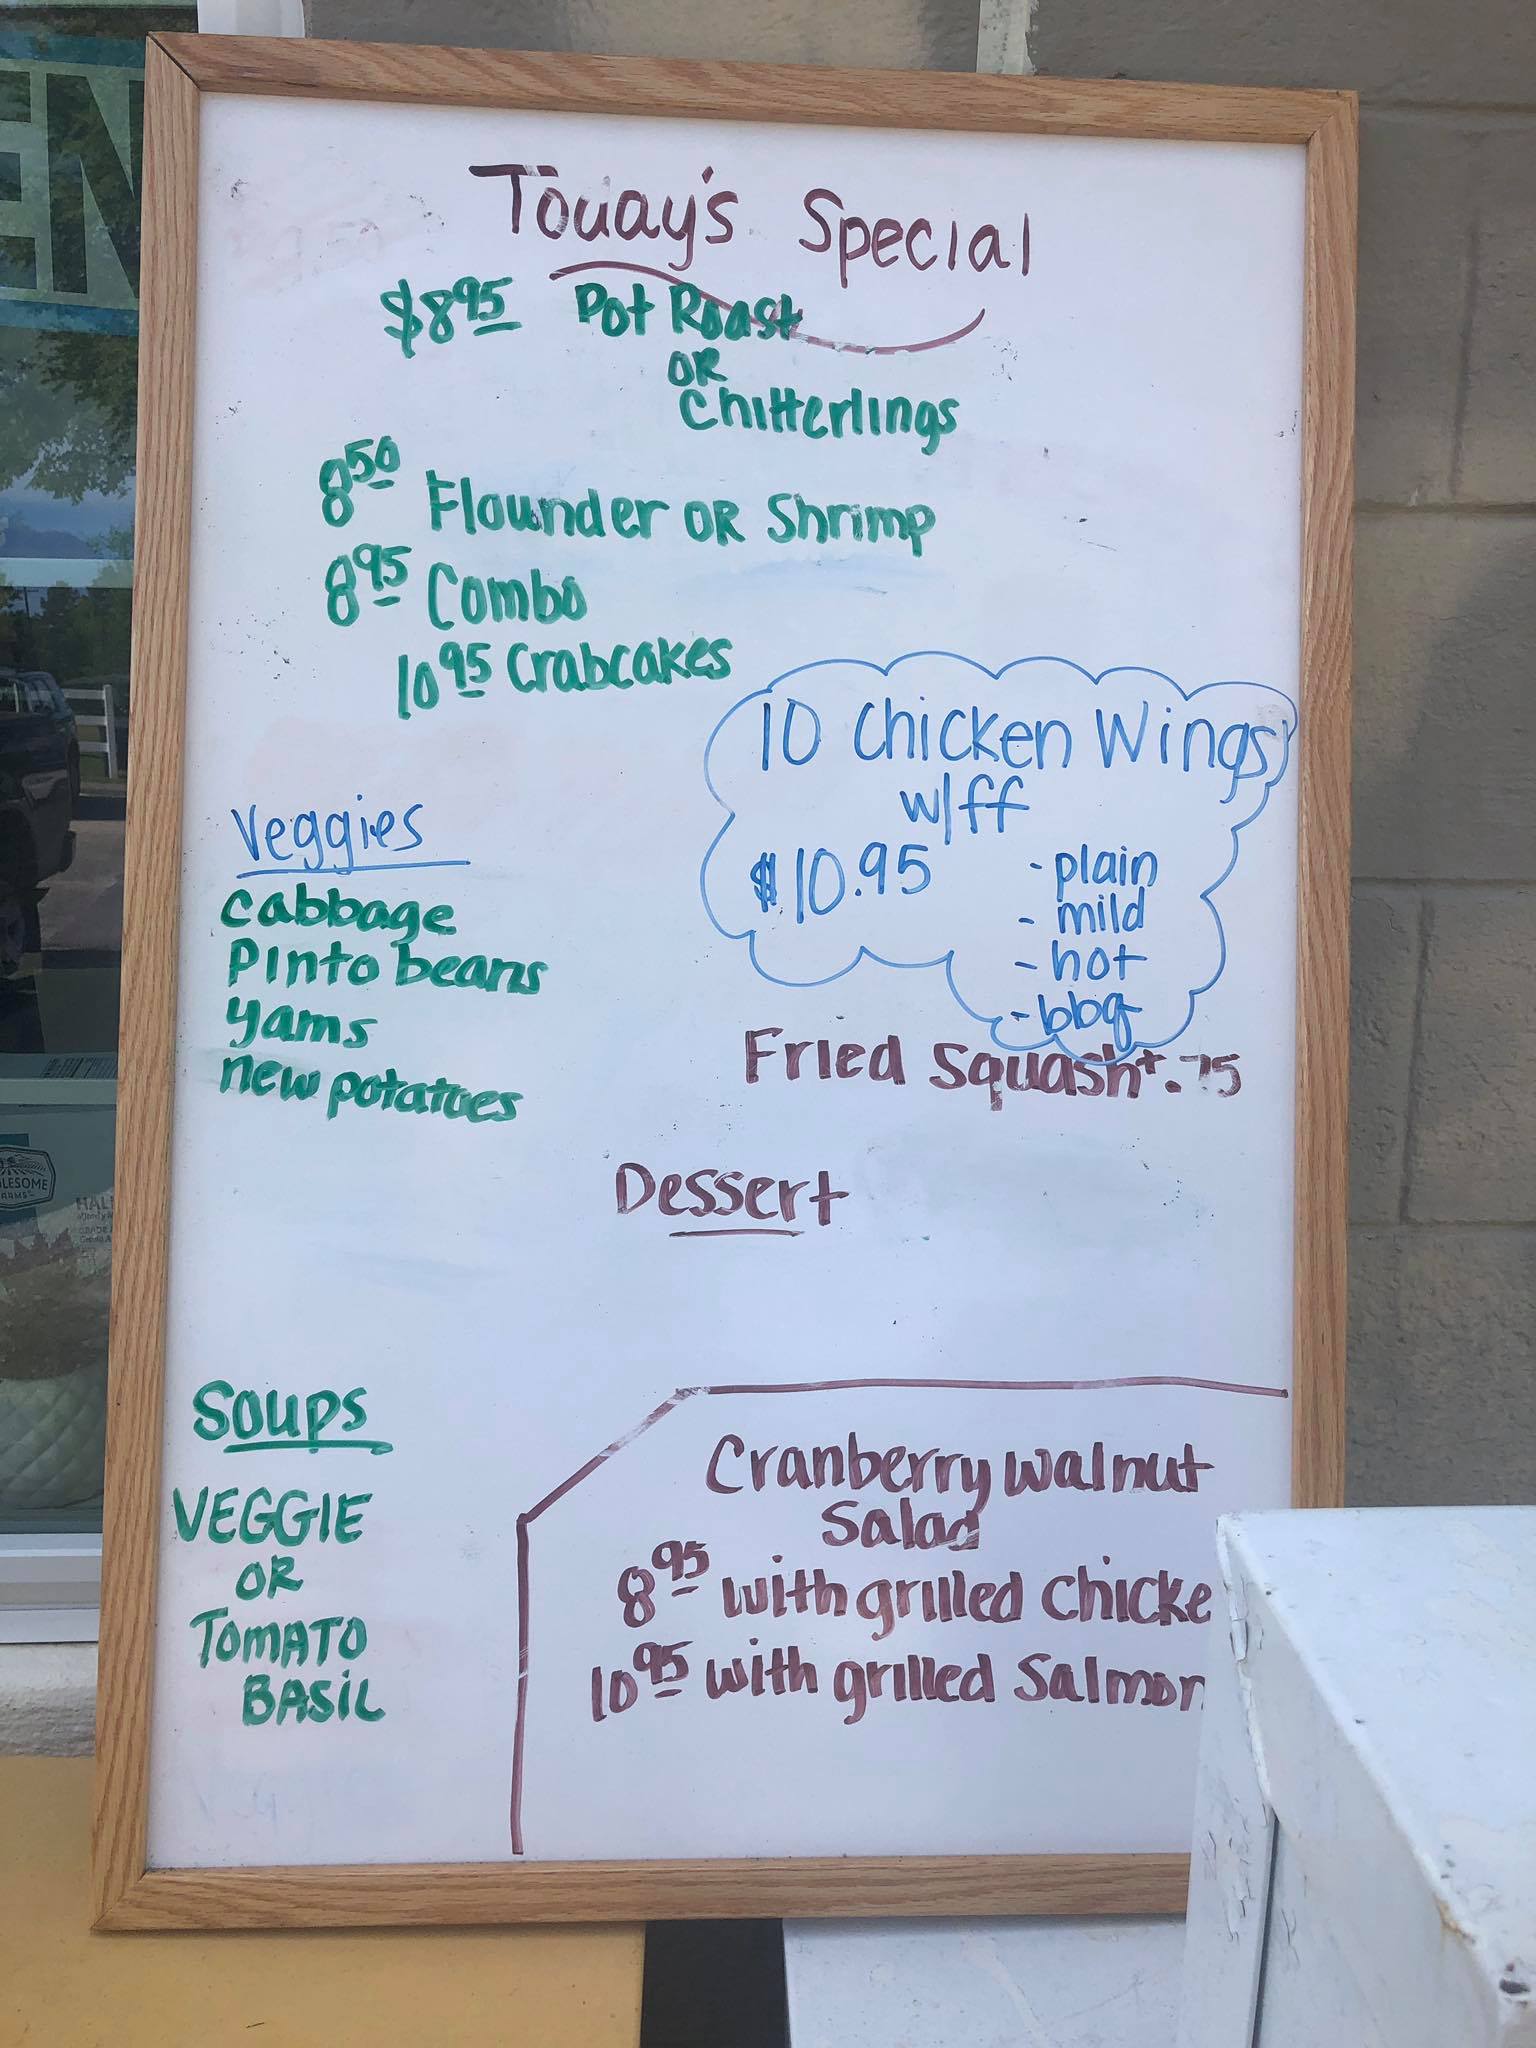 Today's Special
$8.95 Pot Roast
OR
Chitterlings
8.50 Flounder OR Shrimp
8.95 Combo
10.95 Crabcakes
10 Chicken Wings
w/ff
$10.95
- plain
- mild
- hot
- bbq
Veggies
cabbage
Pinto beans
yams
new potatoes
Fried Squash +.75
Dessert
Soups
VEGGIE
OR
TOMATO
BASIL
Cranberry walnut
Salad
8.95 with grilled chicke
10.95 with grilled Salmon
EN
LESOME